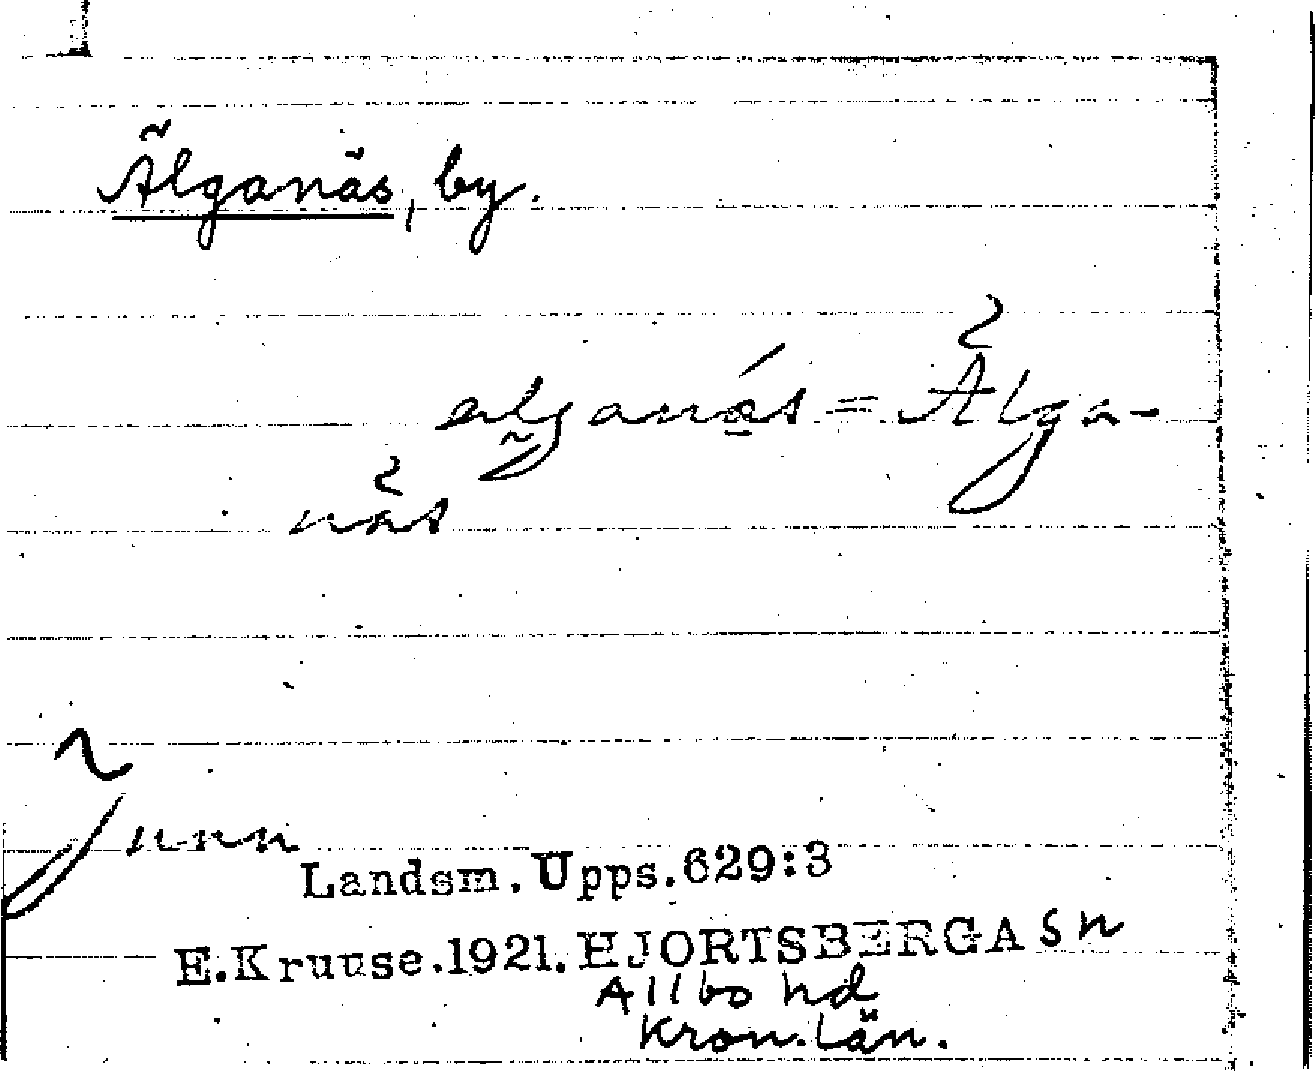 Älganäs, by.
alganäs = Älga-
näs
Landsm. Upps. 629:3
E. Kruuse. 1921. HJORTSBERGA Sn
Allbo hd
Kron. län.